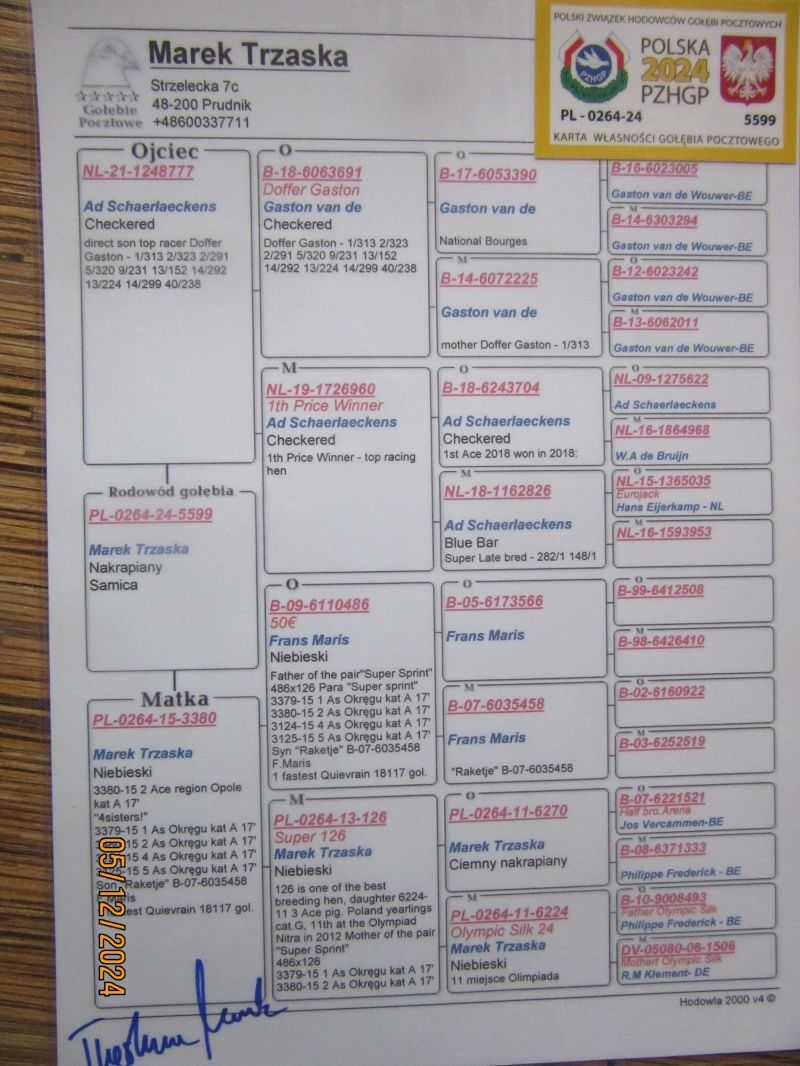 Marek Trzaska
Strzelecka 7c
48-200 Prudnik
+48600337711
Gołębie
Pocztowe
POLSKI ZWIĄZEK HODOWCÓW GOŁĘBI POCZTOWYCH
PZHGP
POLSKA
2024
PZHGP
PL - 0264-24
5599
KARTA WŁASNOŚCI GOŁĘBIA POCZTOWEGO
Ojciec
NL-21-1248777
Ad Schaerlaeckens
Checkered
direct son top racer Doffer
Gaston - 1/313 2/323 2/291
5/320 9/231 13/152 14/292
13/224 14/299 40/238
Rodowód gołębia
PL-0264-24-5599
Marek Trzaska
Nakrapiany
Samica
Matka
PL-0264-15-3380
Marek Trzaska
Niebieski
3380-15 2 Ace region Opole
kat A 17'
"4sisters!"
3379-15 1 As Okręgu kat A 17'
15 2 As Okręgu kat A 17'
15 4 As Okręgu kat A 17'
15 5 As Okręgu kat A 17'
Son "Raketje" B-07-6035458
Maris
Quievrain 18117 gol.
O
B-18-6063691
Doffer Gaston
Gaston van de
Checkered
Doffer Gaston - 1/313 2/323
2/291 5/320 9/231 13/152
14/292 13/224 14/299 40/238
M
NL-19-1726960
1th Price Winner
Ad Schaerlaeckens
Checkered
1th Price Winner - top racing
hen
O
B-09-6110486
50€
Frans Maris
Niebieski
Father of the pair"Super Sprint"
486x126 Para "Super sprint"
3379-15 1 As Okręgu kat A 17'
3380-15 2 As Okręgu kat A 17'
3124-15 4 As Okręgu kat A 17'
3125-15 5 As Okręgu kat A 17'
Syn "Raketje" B-07-6035458
F.Maris
1 fastest Quievrain 18117 gol.
M
PL-0264-13-126
Super 126
Marek Trzaska
Niebieski
126 is one of the best
breeding hen, daughter 6224-
11 3 Ace pig. Poland yearlings
cat.G, 11th at the Olympiad
Nitra in 2012 Mother of the pair
"Super Sprint"
486x126
3379-15 1 As Okręgu kat A 17'
3380-15 2 As Okręgu kat A 17'
O
B-17-6053390
Gaston van de
National Bourges
M
B-14-6072225
Gaston van de
mother Doffer Gaston - 1/313
O
B-18-6243704
Ad Schaerlaeckens
Checkered
1st Ace 2018 won in 2018:
M
NL-18-1162826
Ad Schaerlaeckens
Blue Bar
Super Late bred - 282/1 148/1
O
B-05-6173566
Frans Maris
M
B-07-6035458
Frans Maris
"Raketje" B-07-6035458
O
PL-0264-11-6270
Marek Trzaska
Ciemny nakrapiany
M
PL-0264-11-6224
Olympic Silk 24
Marek Trzaska
Niebieski
11 miejsce Olimpiada
B-16-6023005
Gaston van de Wouwer-BE
M
B-14-6303294
Gaston van de Wouwer-BE
O
B-12-6023242
Gaston van de Wouwer-BE
M
B-13-6062011
Gaston van de Wouwer-BE
O
NL-09-1275622
Ad Schaerlaeckens
M
NL-16-1864968
W.A de Bruijn
O
NL-15-1365035
Eurojack
Hans Eijerkamp - NL
M
NL-16-1593953
O
B-99-6412508
M
B-98-6426410
O
B-02-6160922
M
B-03-6252519
O
B-07-6221521
Half bro. Arena
Jos Vercammen-BE
M
B-08-6371333
Philippe Frederick - BE
O
B-10-9008493
Father Olympic Silk
Philippe Frederick - BE
M
DV-05080-06-1506
Mothert Olympic Silk
R.M Klement- DE
Hodowla 2000 v4 ©
05/12/2024